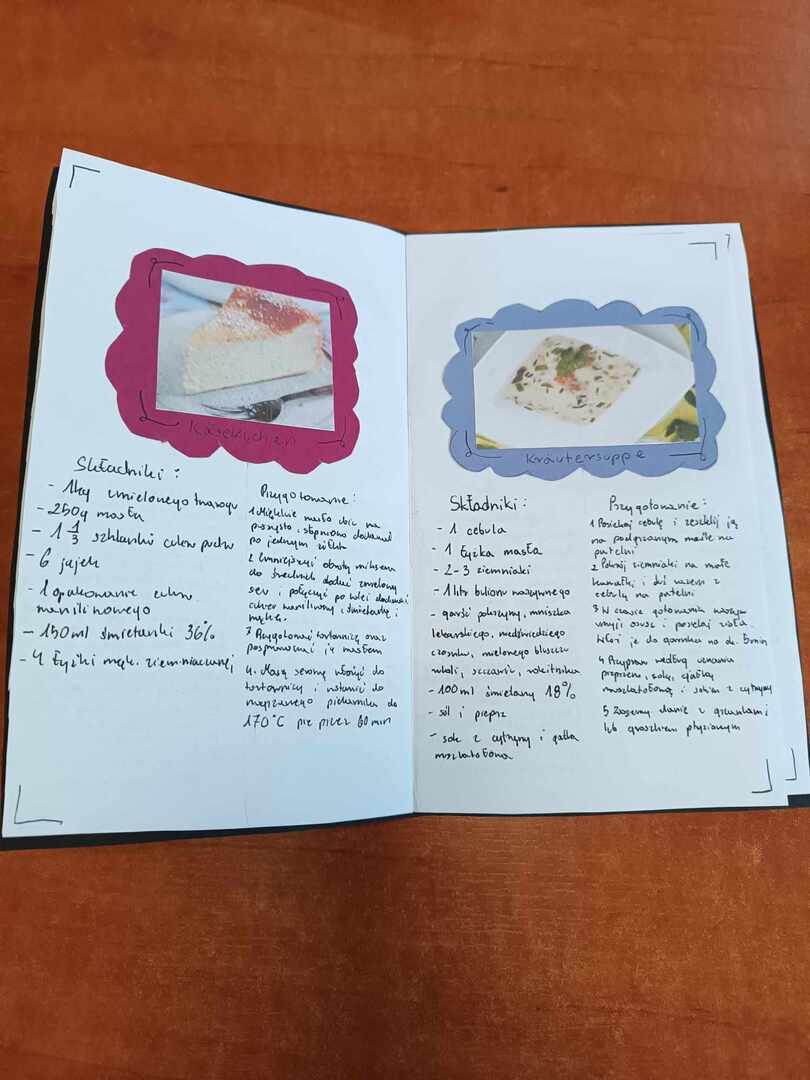 Käsekuchen
Składniki:
- 1kg zmielonego twarogu
- 250g masła
- 1 1/3 szklanki cukru pudru
- 6 jajek
- 1 opakowanie cukru
waniliinowego
- 150ml śmietanki 36%
- 4 łyżki mąk. ziemniaczanej
Przygotowanie:
1 Miękkie masło ubić na
puszysto, stopniowo dodawać
po jednym żółtku
2 Zmniejszyć obroty miksera
do średnich dodać zmielony
ser i połączyć po kolei dodawać
cukier waniliowy, śmietankę i
mąkę.
3 Przygotować tortownicę oraz
posmarować ją masłem
4. Masę serową włożyć do
tortownicy i wstawić do
nagrzanego piekarnika do
170°C piec przez 60 min
7
Kräutersuppe
Składniki:
- 1 cebula
- 1 łyżka masła
- 2-3 ziemniaki
- 1 litr bulionu warzywnego
- garść pokrzywy, mniszka
lekarskiego, niedźwiedziego
czosnku, mielonego bluszczu
szczawiu, rokitnika
- 100ml śmietany 18%
- sól i pieprz
- sok z cytryny i gałka
muszkatołowa
Przygotowanie:
1 Posiekaj cebulę i zeszklij ją
na podgrzanym maśle na
patelni
2 Pokrój ziemniaki na małe
kawałki i duś razem z
cebulą na patelni
3 W czasie gotowania warzyw
umyj, osusz i posiekaj zioła.
Włóż je do garnka na ok. 5min
4 Przypraw według uznania
pieprzem, solą, gałką
muszkatołową i sokiem z cytryny
5 danie z grzankami
lub groszkiem ptysiowym